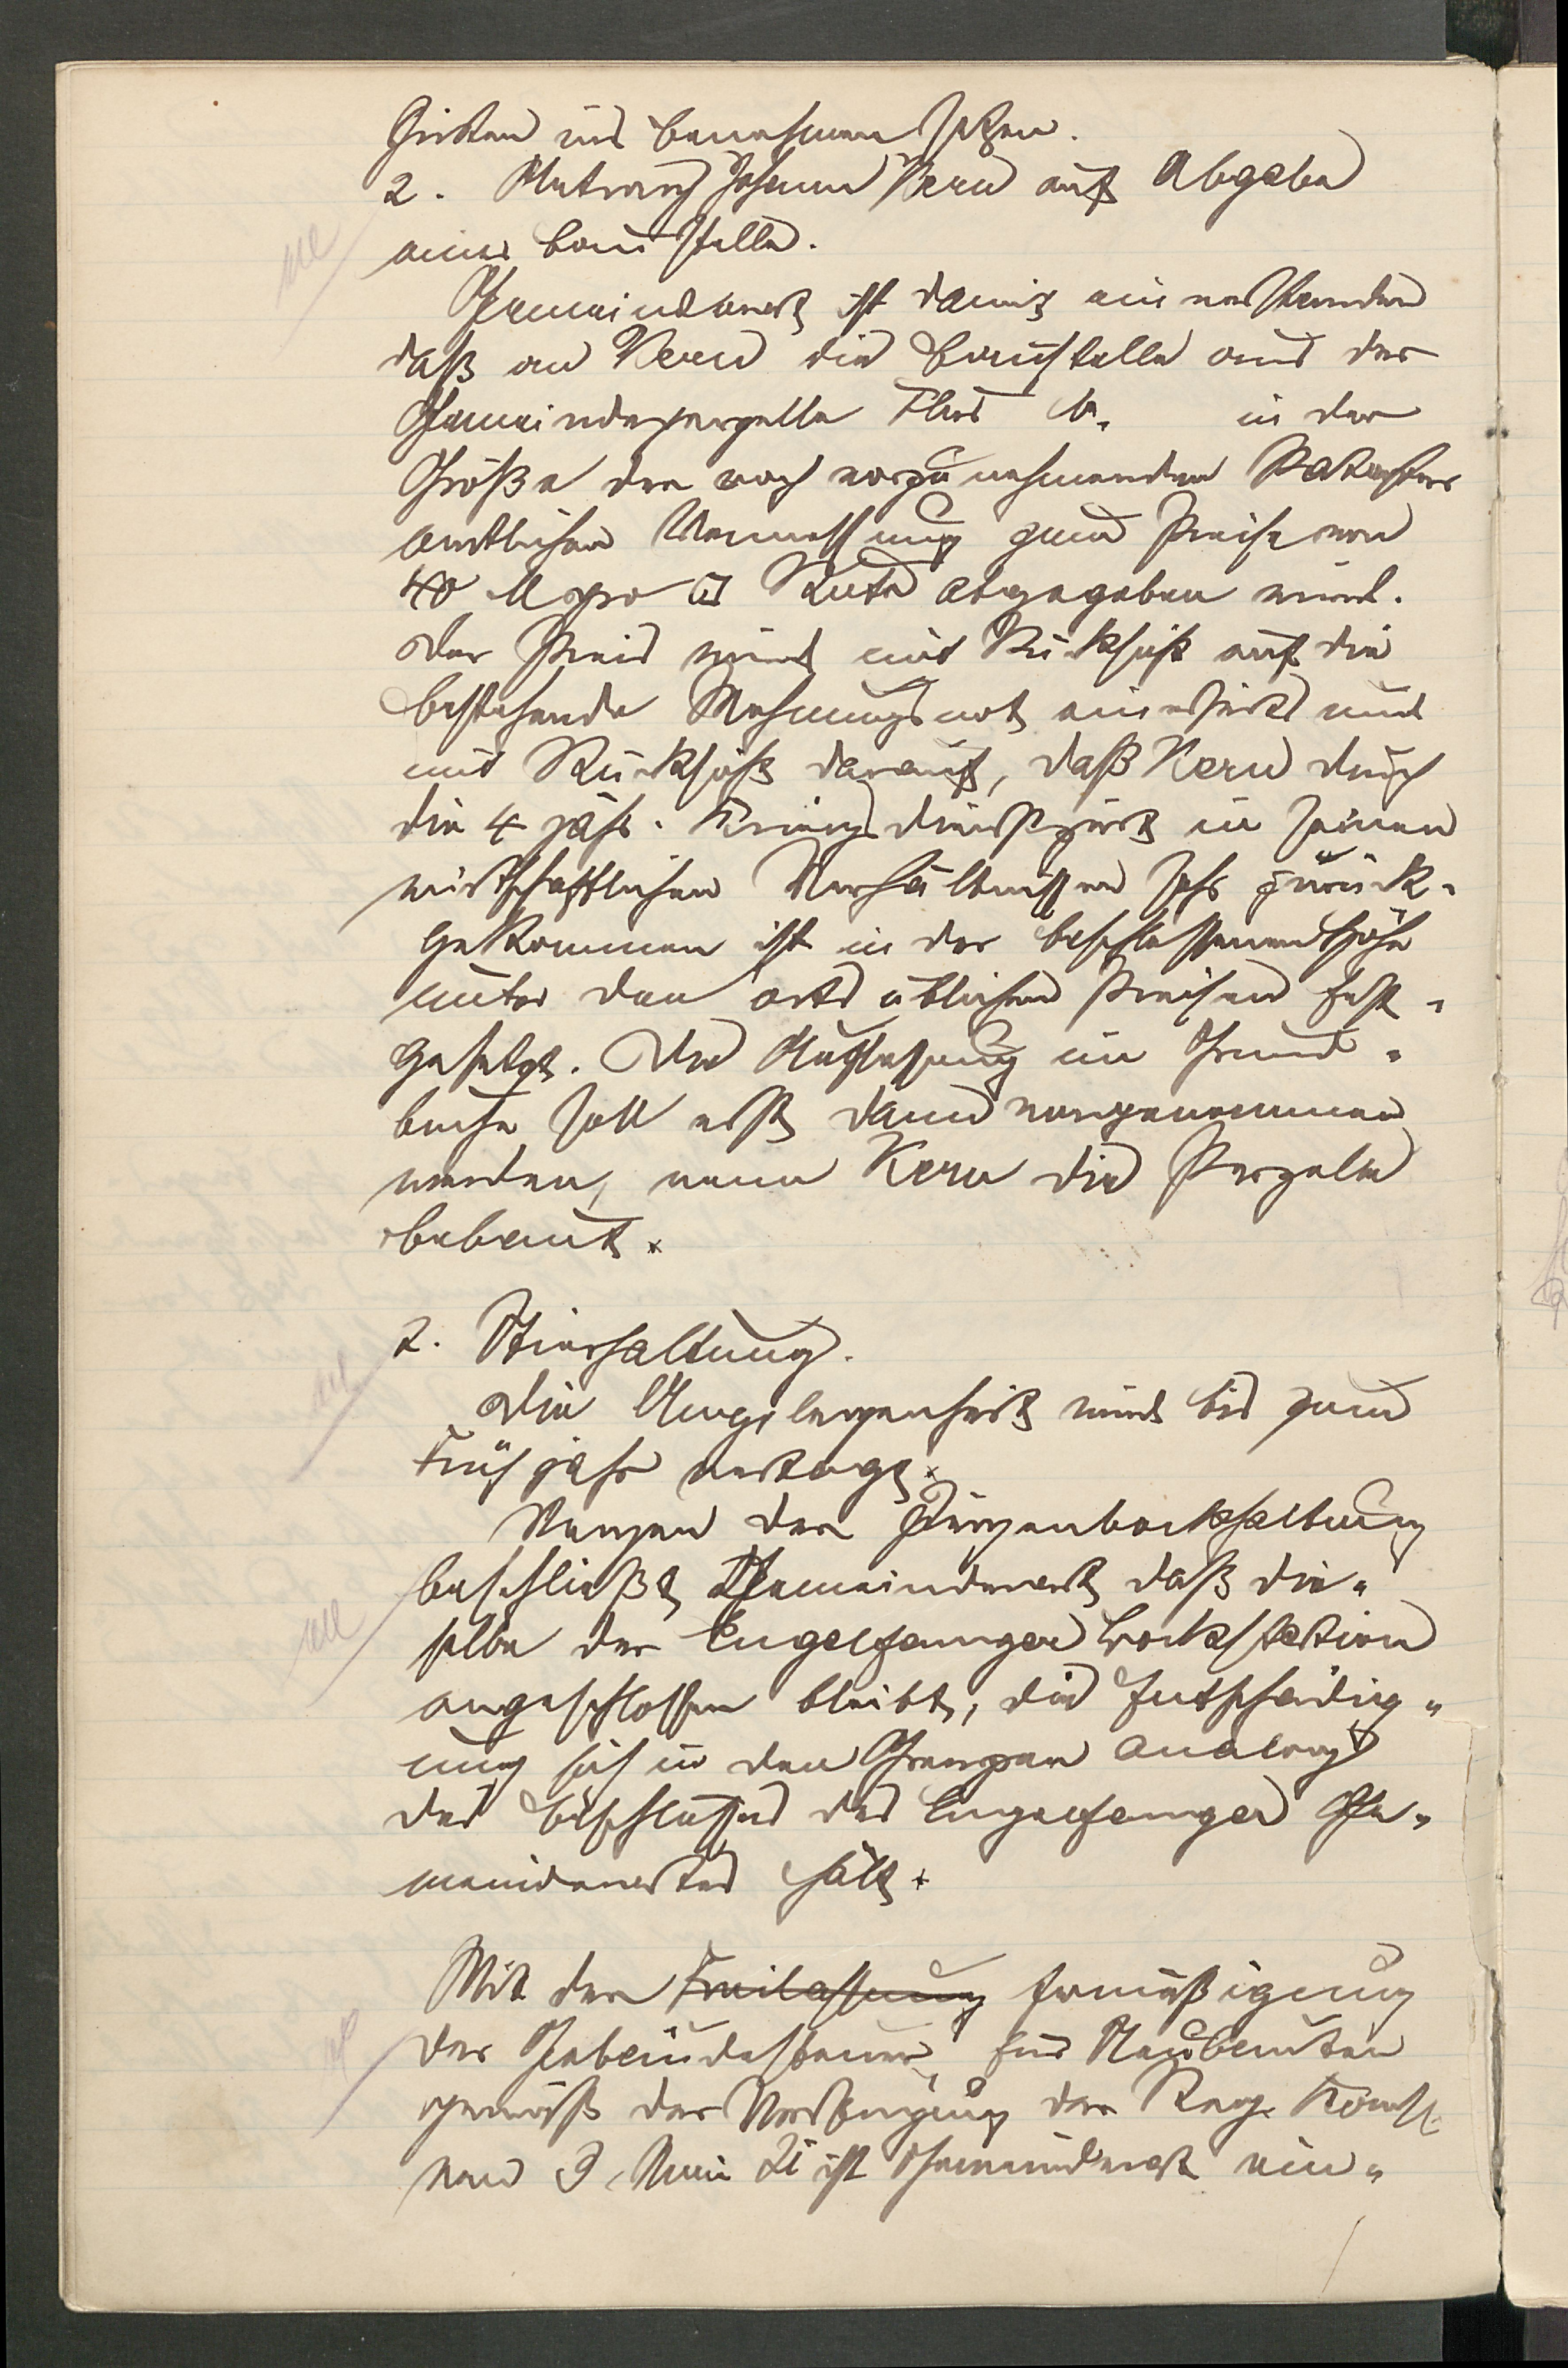 ins Benehmen setzen.
2. Antrag Johann Kern auf Abgabe
einer Baustelle.
Gemeinderat ist damit einverstanden
daß an Kern die Baustelle aus der
Gemeindeparzelle Flur N. in der
Größe der noch vorzunehmenden Kataster
amtlichen Vermessung zum Preise von
40 M pro □ Rute abgegeben wird.
Der Preis wird mit Rücksicht auf die
bestehende Wohnungsnot einerseits und
mit Rücksicht darauf, daß Kern durch
die 4 jähr. Kriegsdienstzeit in seinen
wirtschaftlichen Verhältnissen sehr zurück-
gekommen ist in der beschlossenen Höhe
unter den ortsüblichen Preisen fest-
gesetzt. Die Auflassung im Grund-
buche soll erst dann vorgenommen
werden, wenn Kern die Parzelle
bebaut.
2. Stierhaltung.
Die Angelegenheit wird bis zum
Frühjahr vertagt.
Wegen der Ziegenbockhaltung
beschließt Gemeinderat daß die-
selbe der Engelfanger Bockstation
angeschlossen bleibt, die Entschädig-
ung sich in den Grenzen analog
des Beschlusses des Engelfanger Ge-
meinderates hält.
Mit der Freilassung Ermäßigung
der Gebäudesteuer für Neubauten
gemäß der Verfügung der Reg. Komss.
vom 9. Mai 21 ist Gemeinderat ein-